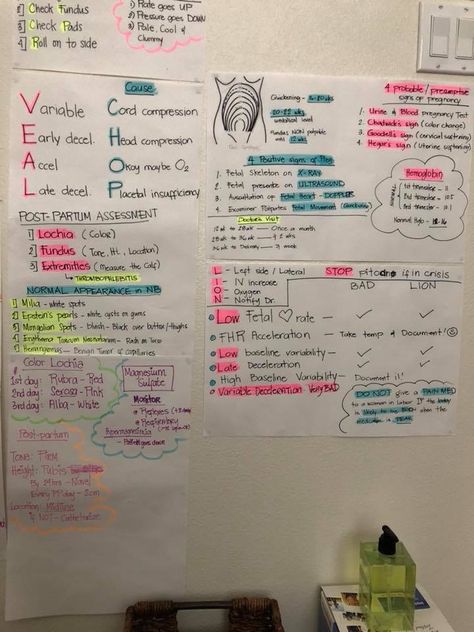 2] Check Fundus
3] Check Pads
4] Roll on to side
1) Rate goes UP
2) Pressure goes DOWN
3) Pale, Cool &
Clummy
Cause
Variable Cord compression
Early decel. Head compression
Accel Okay maybe O₂
Late decel. Placetal insufficiency
POST-PARTUM ASSESSMENT
1] Lochia (Color)
2] Fundus (Tone, Ht., Location)
3] Extremities (Measure the Calf)
↳ THROMBOPHLEBITIS
NORMAL APPEARANCE in NB
1] Milia - white spots
2] Epstein's pearls - white cysts on gums
3] Mongolian Spots - bluish - Black over buttox/thighs
Color Lochia
1st day: Rubra - Red
2nd day: Serosa - Pink
3rd day: Alba - White
Magnesium
Sulfate
Monitor
Reflexes
Respiratory
Post-partum
Tone: Firm
Height: Pubis
By 24hrs - Navel
Location: Midline
if NOT - Catheterize
Quickening -
umbilical level
Fundus NON palpable
until 12 wks
4 Positive signs of
1. Fetal Skeleton on X-RAY
2. Fetal presente on ULTRASOUND
3. Auscultation of Fetal Heart - DOPPLER
4. Examiner Palpates Fetal Movement
Doctor's Visit
Once a month
4 probable/presumptive
signs of pregnancy
1. Urine & Blood pregnancy Test
2. Chadwick's sign (color change)
3. Goodell's sign (cervical softening)
4. Hegar's sign (Uterine softening)
Hemoglobin
NORMAL
L - Left side / Lateral
I - IV increase
O - Oxygen
N - Notify Dr.
STOP pitocin if in crisis
BAD LION
Low Fetal ♡ rate — ✓ ✓
FHR Acceleration — Take temp & Document!
Low baseline variability — ✓ ✓
Late Deceleration — ✓ ✓
High Baseline Variability — Document it!
Variable Deceleration Very BAD
DO NOT give a PAIN MED
to a woman in labor IF the baby
is likely to be BORN when the
medicine is PEAK